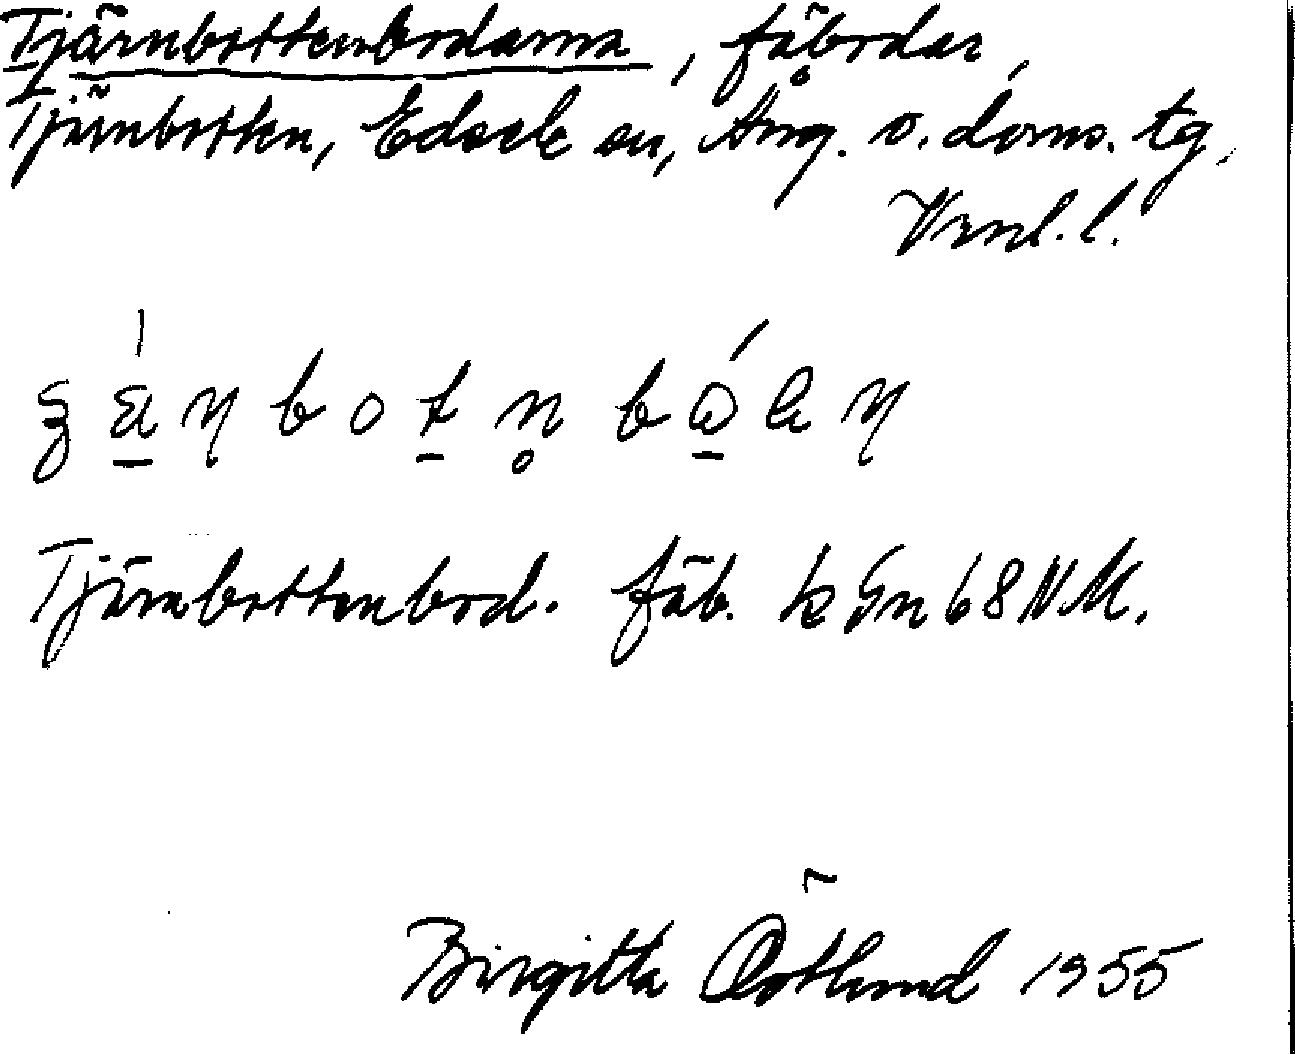 Tjärnbottenbodarna, fäbodar,
Tjärnbotten, Edsele sn, Ång. v. doms. tg,
Vrnl. l.
bot n b
Tjärnbottenbod. fäb. k Gn 68 NM.
Birgitta Östlund 1955